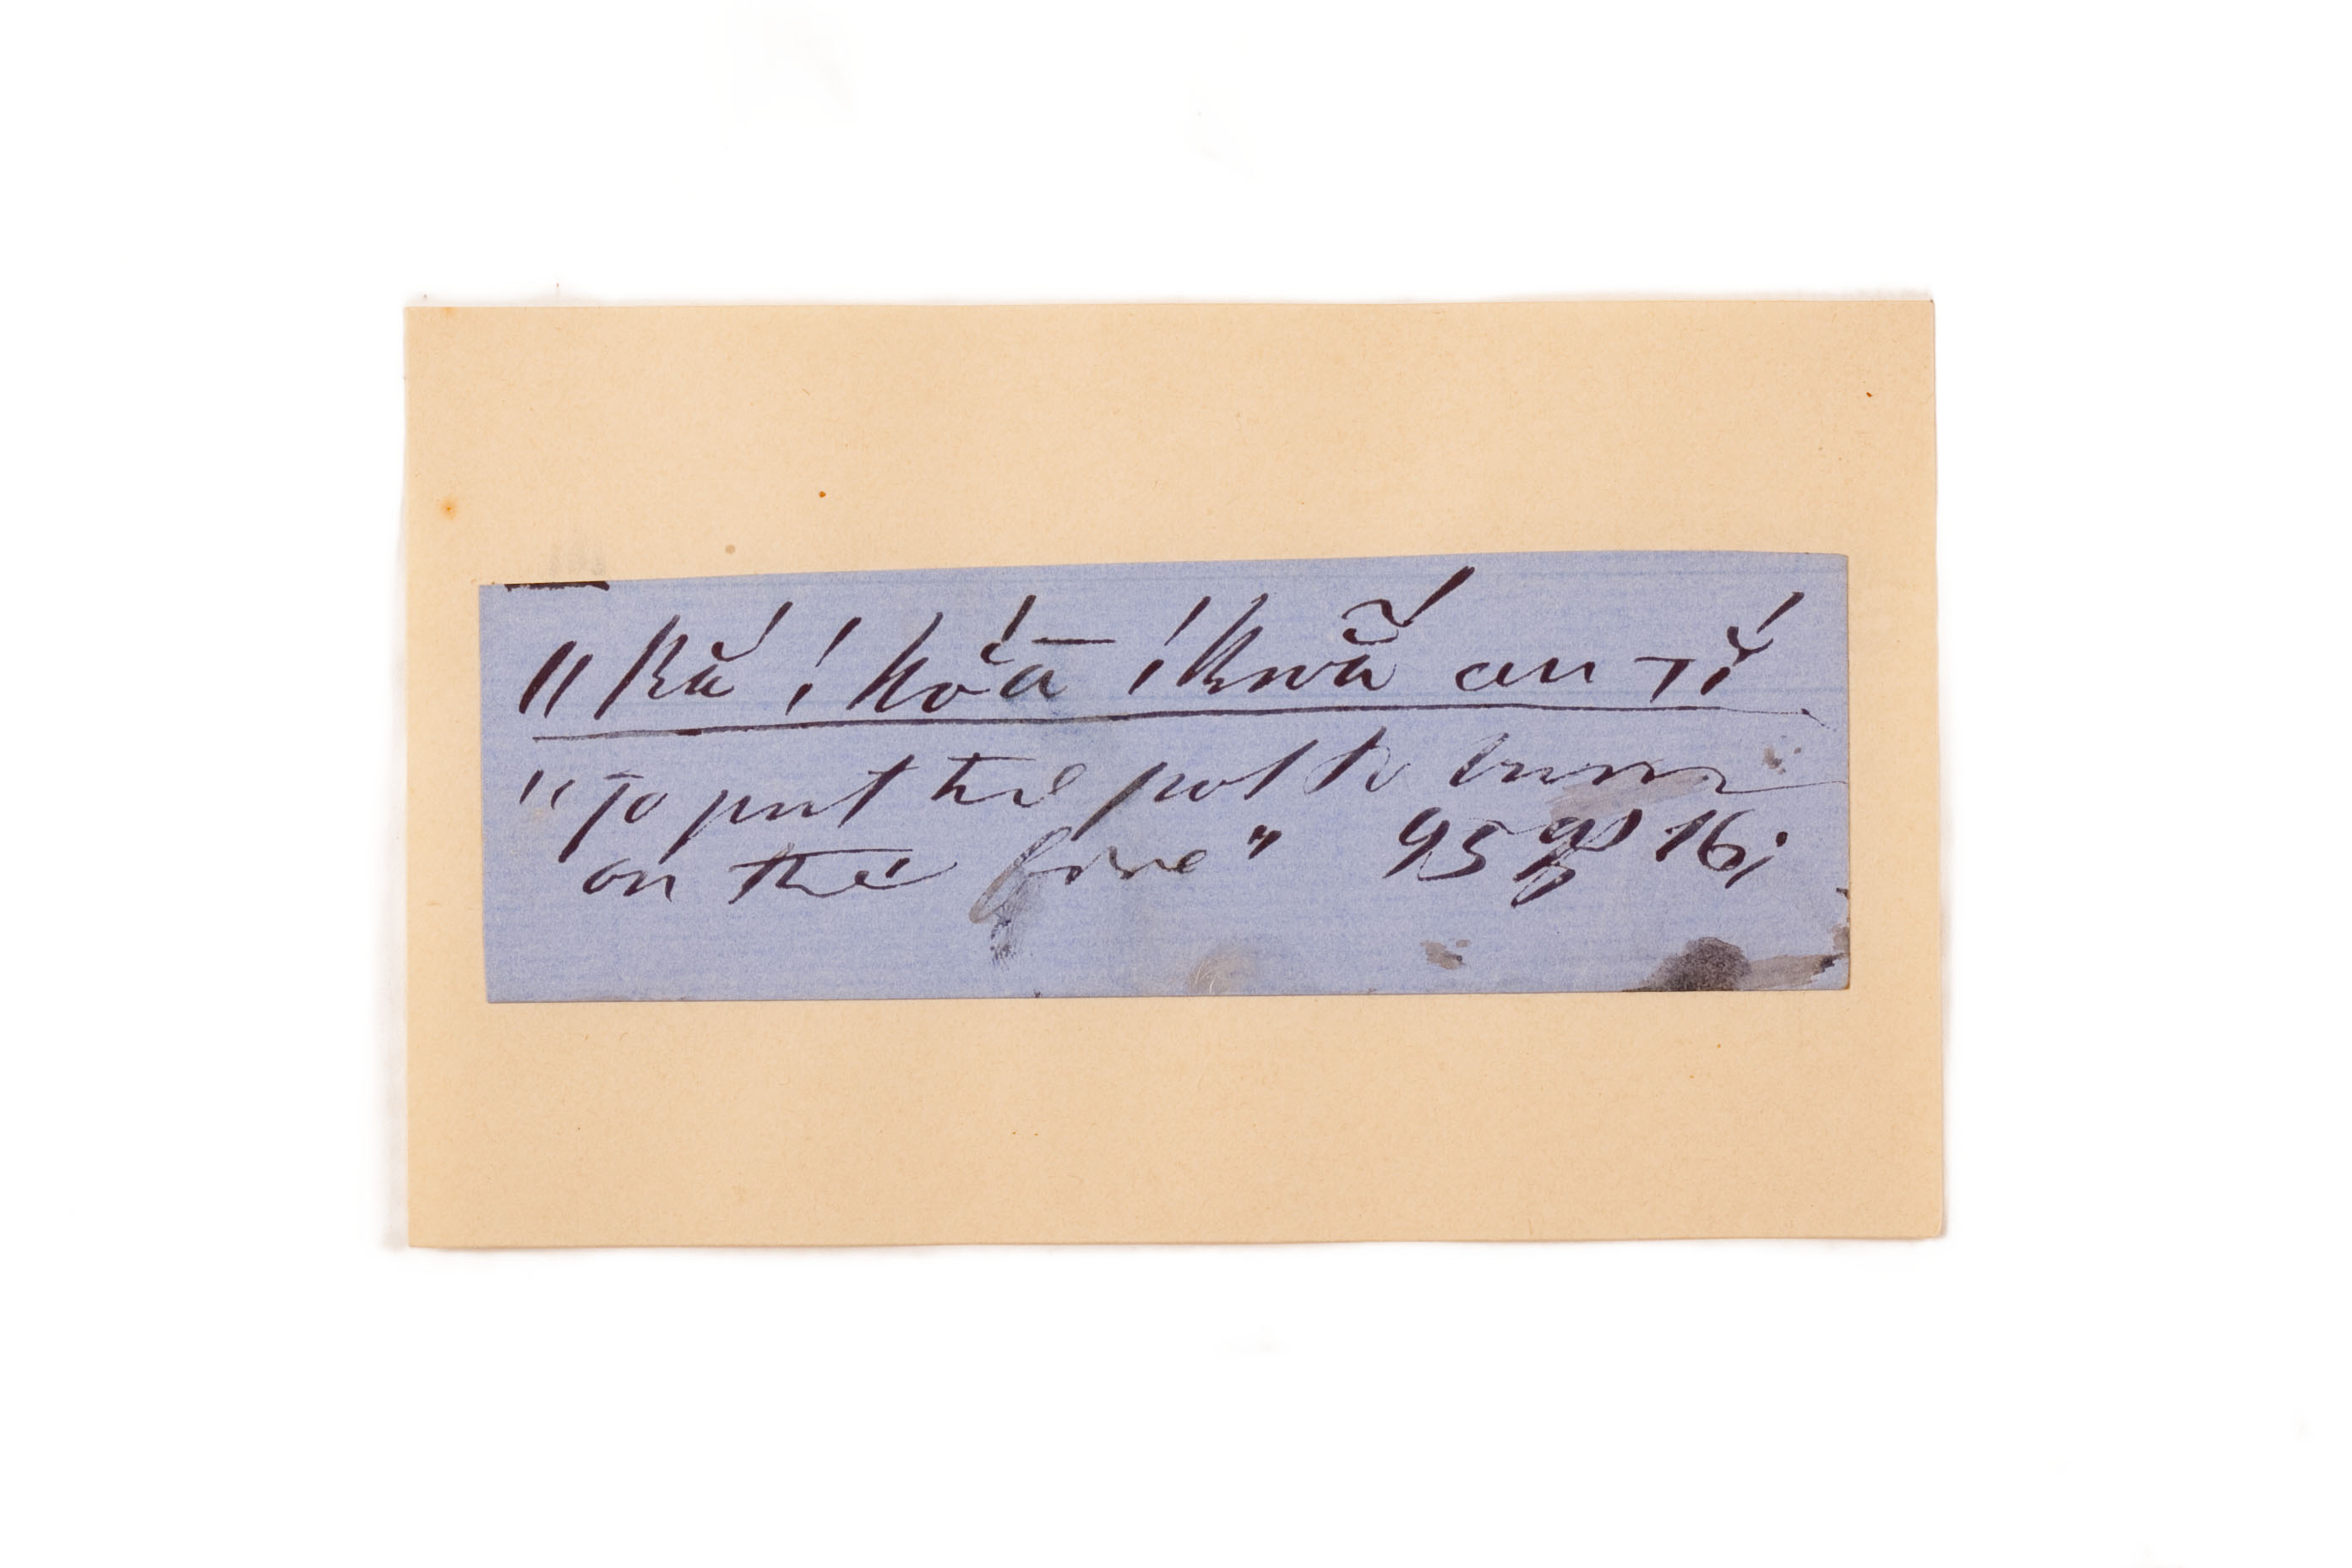 "kă ! kŏ́ā !kwã́ au Tĭ́
"To put the pot to burn
on the fire" 95 16;